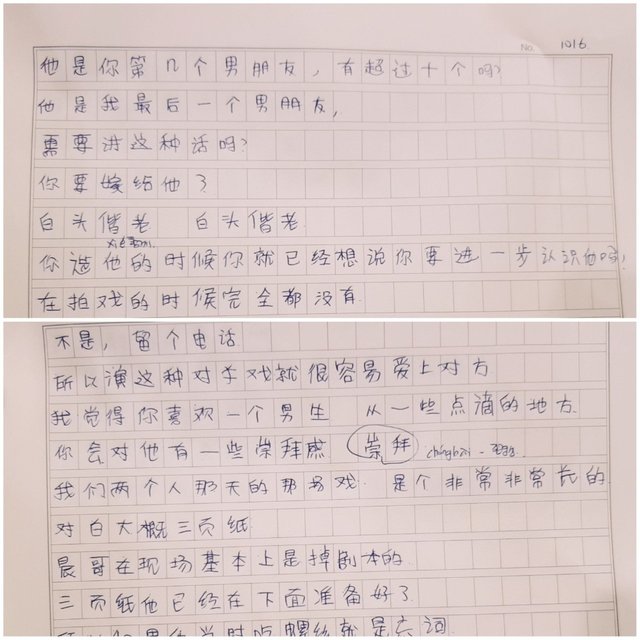 No. 1016
他是你第几个男朋友，有超过十个吗?
他是我最后一个男朋友,
需要讲这种话吗?
你要嫁给他了
白头偕老 白头偕老
你追他的时候你就已经想说你要进一步认识他吗!
在拍戏的时候完全都没有
不是，留个电话
所以演这种对手戏就很容易爱上对方
我觉得你喜欢一个男生 从一些点滴的地方
你会对他有一些崇拜感 崇拜
我们两个人那天的那场戏 是个非常非常长的
对白大概三页纸
晨哥在现场基本上是掉剧本的
三页纸他已经在下面准备好了